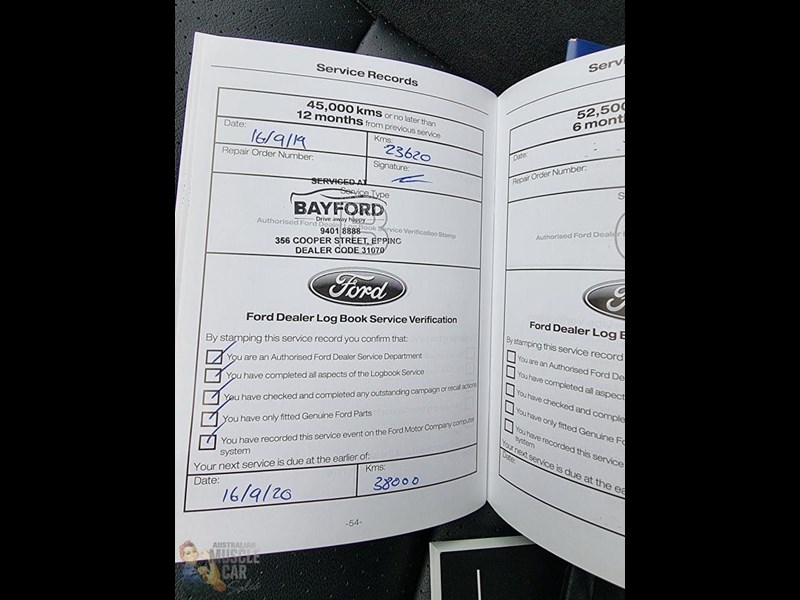 Service Records
45,000 kms or no later than
12 months from previous service
Date:
16/9/19
Kms:
23620
Repair Order Number:
Signature:
SERVICED AT
Service Type
BAYFORD
Drive away happy
Authorised Ford Dealer Log Book Service Verification Stamp
9401 8888
356 COOPER STREET, EPPING
DEALER CODE 31070
Ford
Ford Dealer Log Book Service Verification
By stamping this service record you confirm that:
You are an Authorised Ford Dealer Service Department
You have completed all aspects of the Logbook Service
You have checked and completed any outstanding campaign or recall actions
You have only fitted Genuine Ford Parts
You have recorded this service event on the Ford Motor Company computer
system
Your next service is due at the earlier of:
Date:
16/9/20
Kms:
38000
-54-
Servi
52,500
6 month
Date:
Repair Order Number:
Authorised Ford Dealer
Fo
Ford Dealer Log B
By stamping this service record
You are an Authorised Ford De
You have completed all aspects
You have checked and comple
You have only fitted Genuine Fo
You have recorded this service
system
Your next service is due at the ea
Date:
AUSTRALIAN
MUSCLE
CAR
Sales